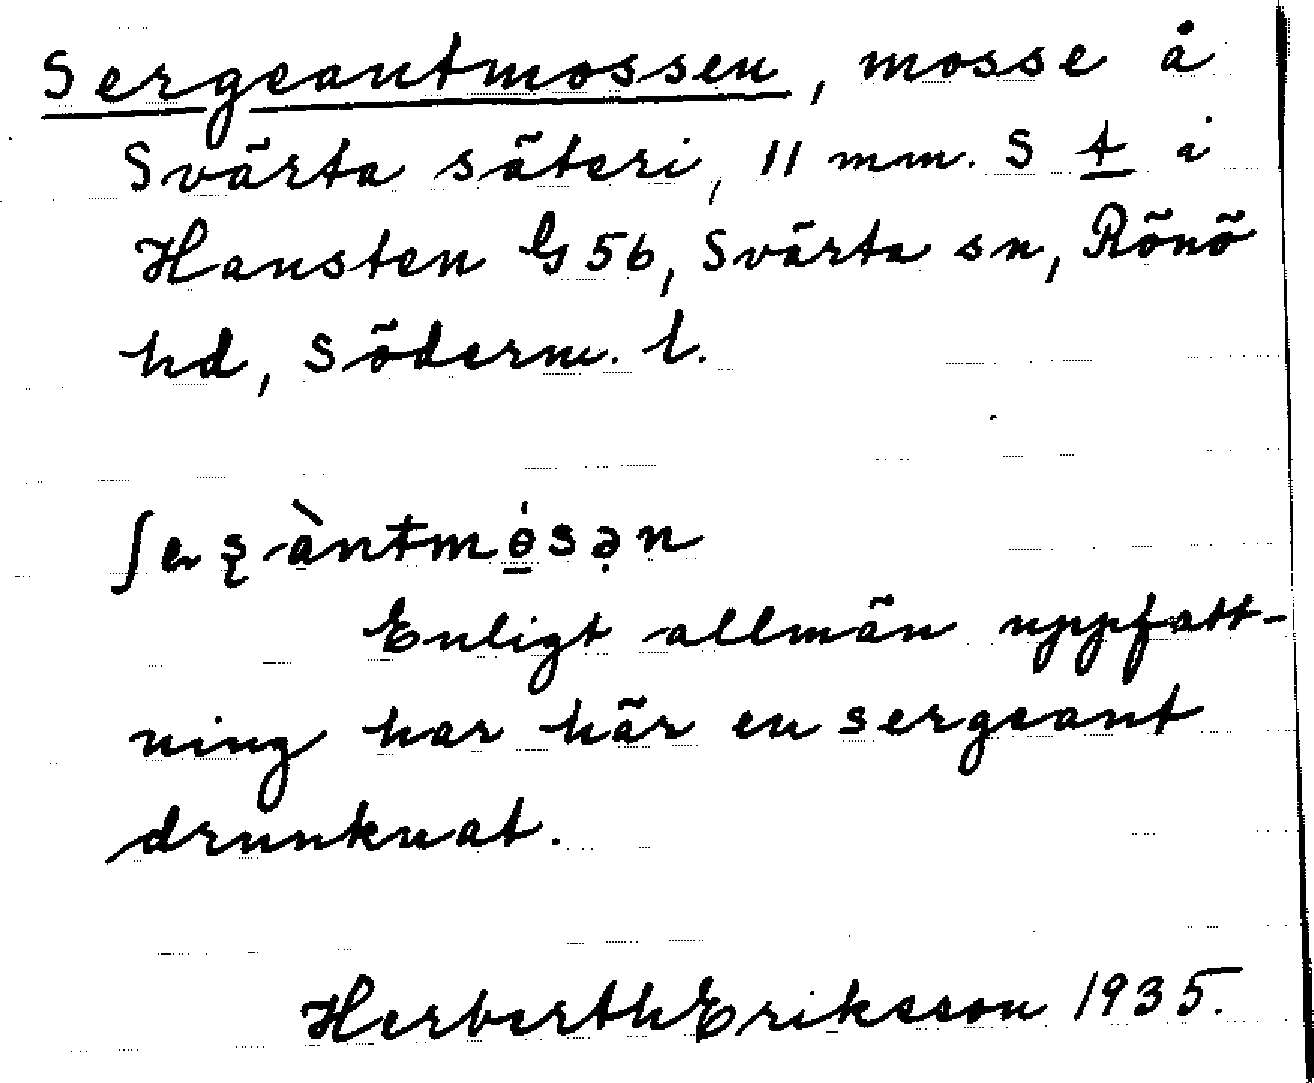 Sergeantmossen, mosse å
Svärta säteri, 11 mm. S t i
Hansten G 56, Svärta sn, Rönö
hd, Söderm. l.
Enligt allmän uppfatt-
ning har här en sergeant
drunknat.
Herberth Eriksson 1935.